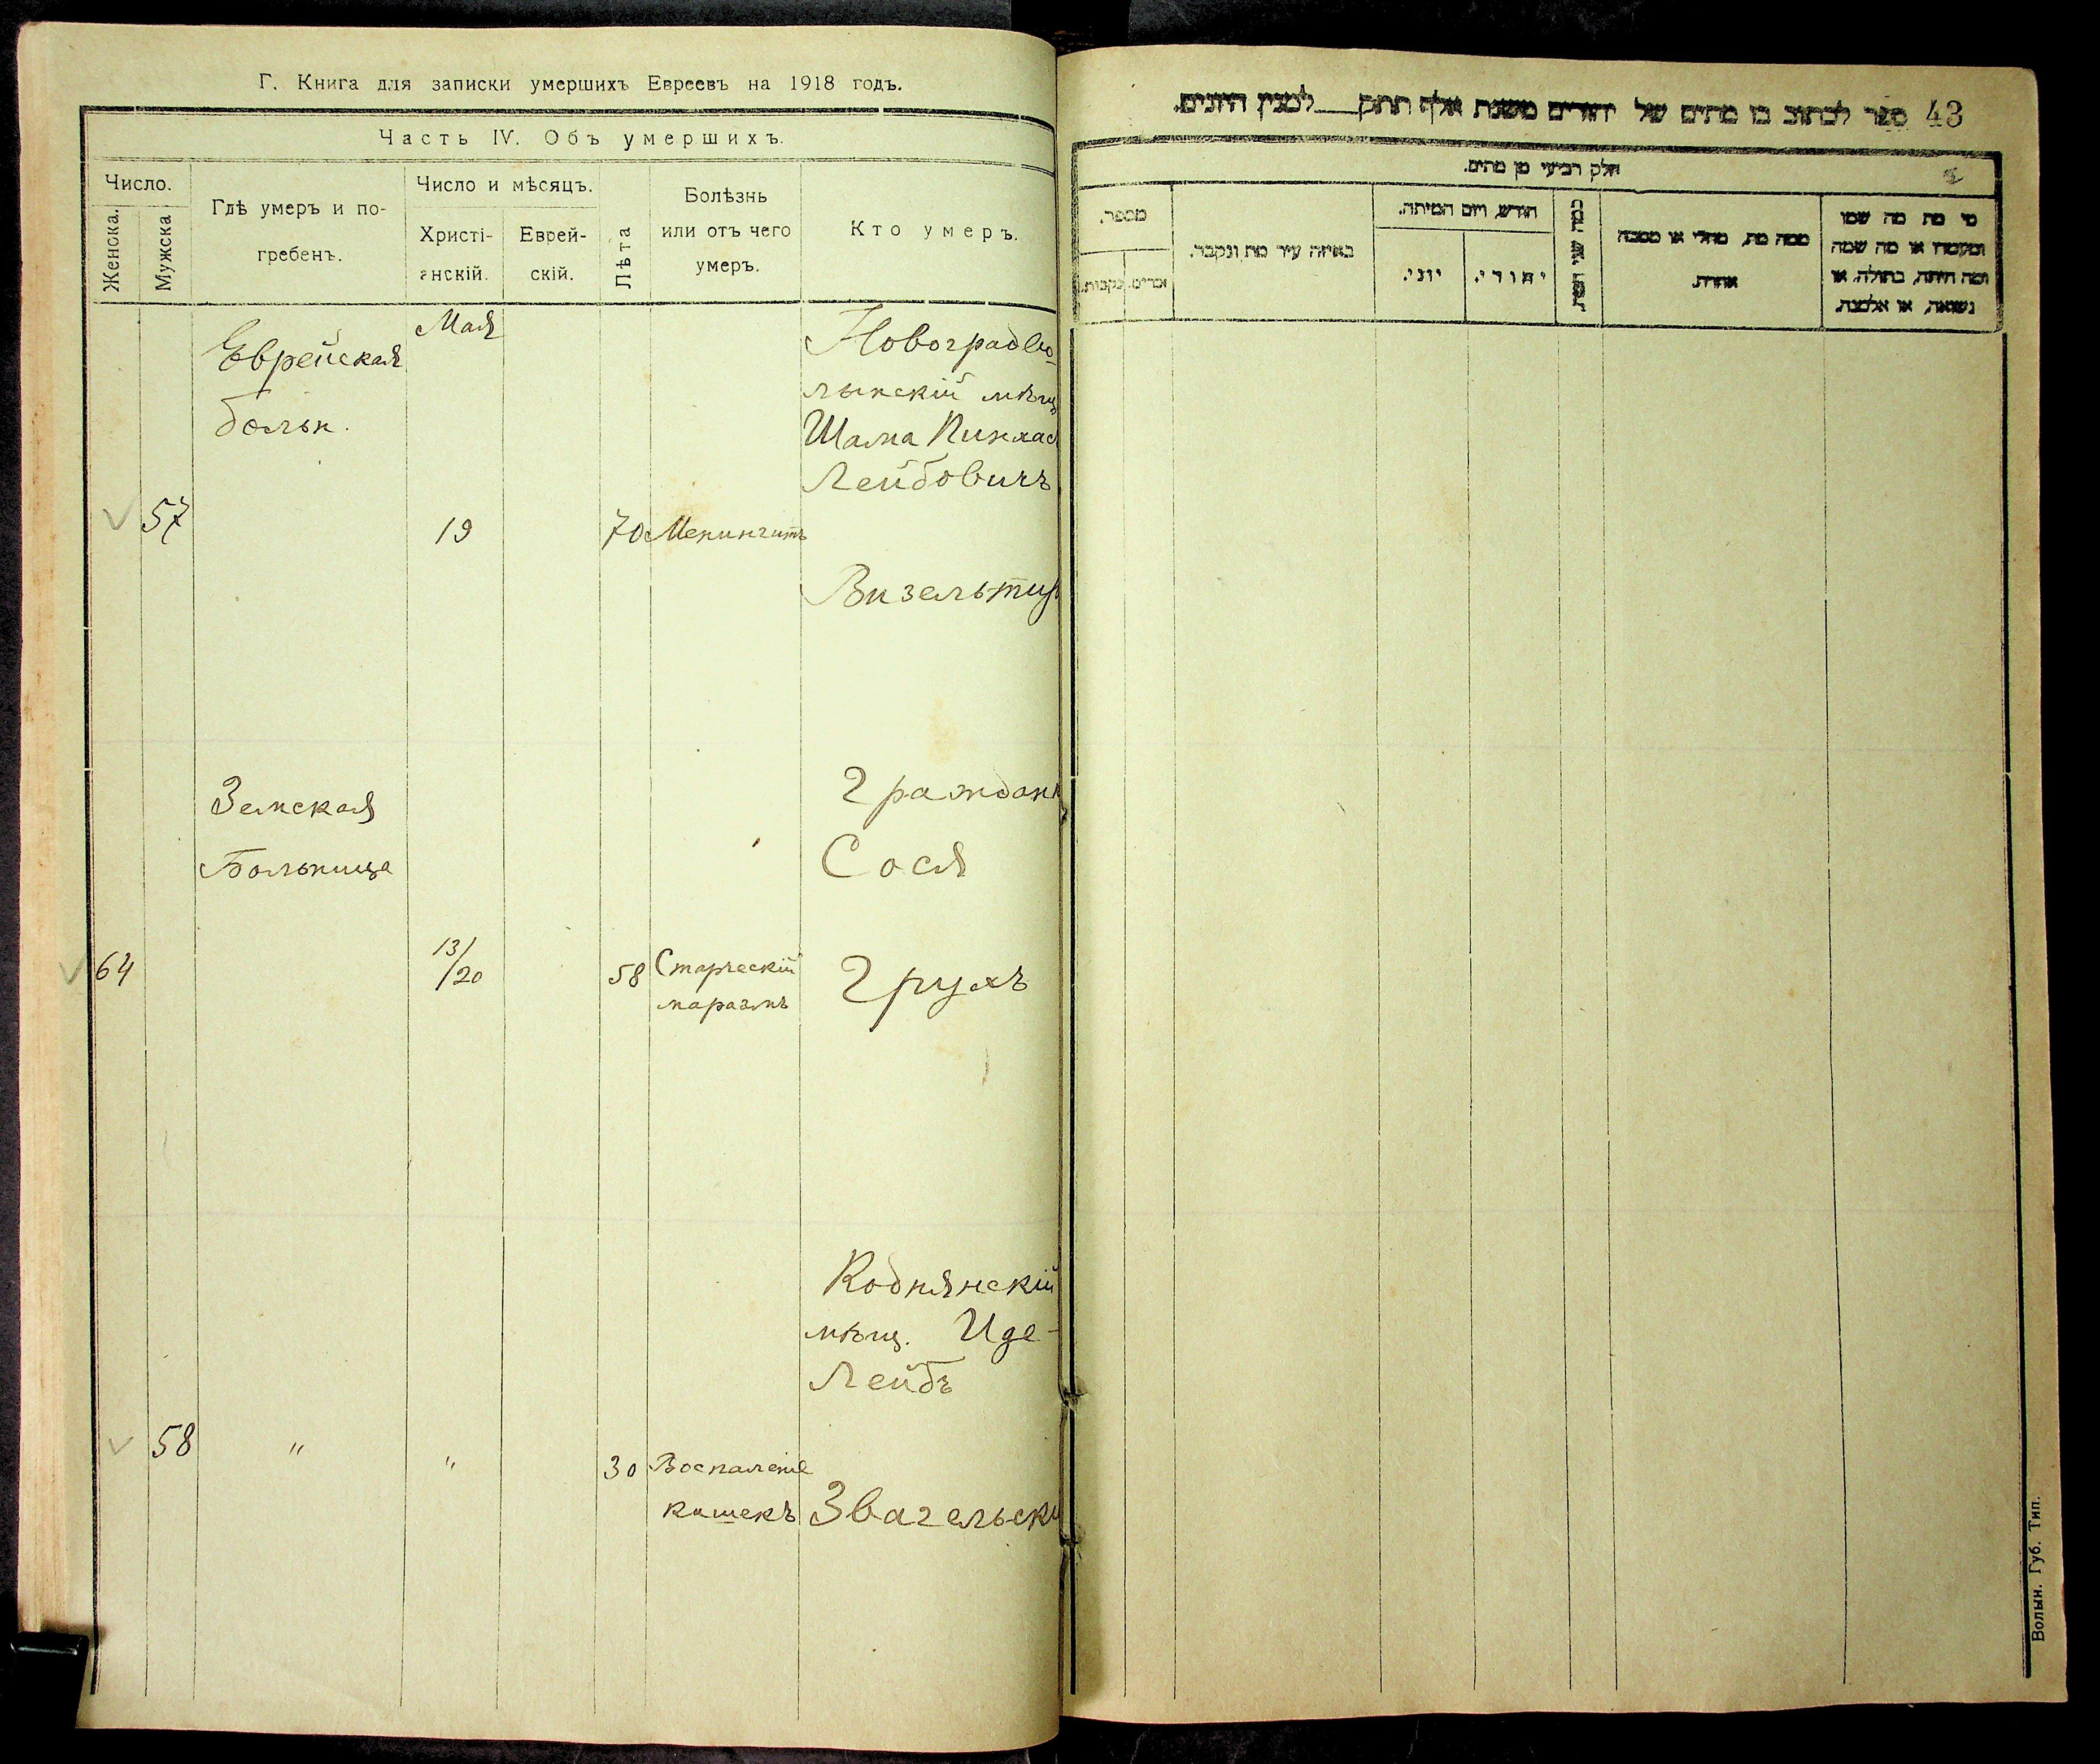 Г. Книга для записки умершихъ Евреевъ на 1918 годъ.
Часть IV. Объ умершихъ.
Число.
Женска.
Мужска
Гдѣ умеръ и по-
гребенъ.
Число и мѣсяцъ.
Христі-
анскій.
Еврей-
скій.
Лѣта
Болѣзнь
или отъ чего
умеръ.
Кто умеръ.
Еврейская
больн.
Мая
Новоградво
лынскій мѣщ
Шама Пинхас
Лейбовичъ
57
19
70
Менингитъ
Визельтир
Земская
Больница
Граждан
Сося
64
13/
/20
58
Старческій
маразмъ
Грухъ
Коднянскій
мѣщ. Иде-
Лейбъ
58
"
"
30
Воспаленіе
кишекъ
Звагельски
43
ספר לכתוב בו מתים של יהודים משנת אלף תתק לסנין היונים.
חלק רביעי מן מתים.
מספר.
זכרים.
נקבות.
באיזה עיר מת ונקבר.
חודש, ויום המיתה.
יוני.
יהודי.
כמה שני
ממה מת, מחלי או מסבה
אחרת.
מי מת מה שמו
או מה שמה
ומה היתה, בתולה, או
נשואה, או אלמנה.
Волын. Губ. Тип.